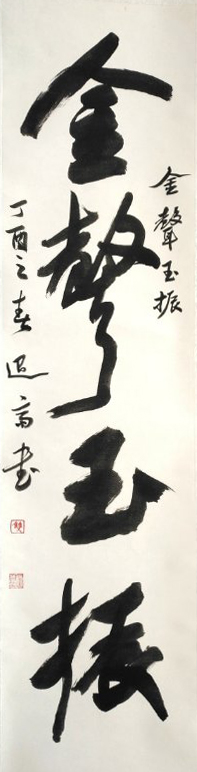 金聲玉振
金聲玉振
丁酉之春過高書